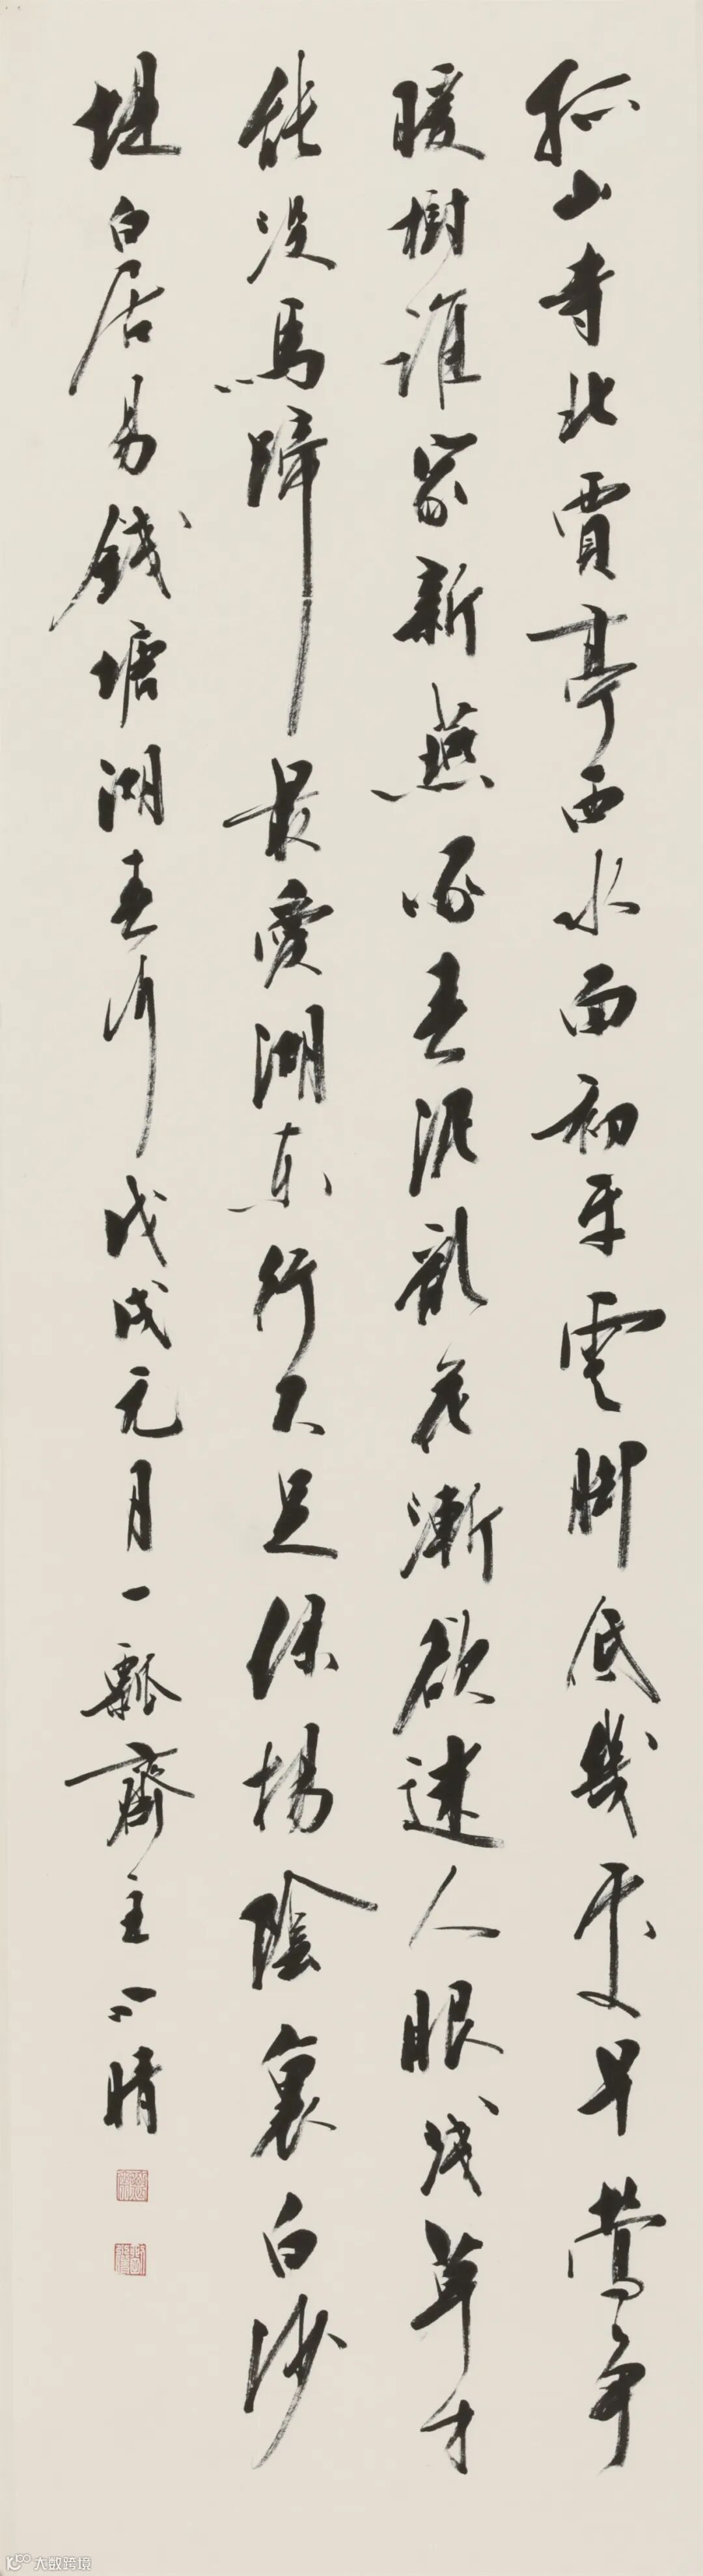 孤山寺北賈亭西水面初平雲脚低幾處早鶯爭
暖樹誰家新燕啄春泥亂花漸欲迷人眼浅草才
能没馬蹄最愛湖東行不足緑楊陰裏白沙
堤白居易錢塘湖春行戊戌元月一瓢齋主晴
大数跨境